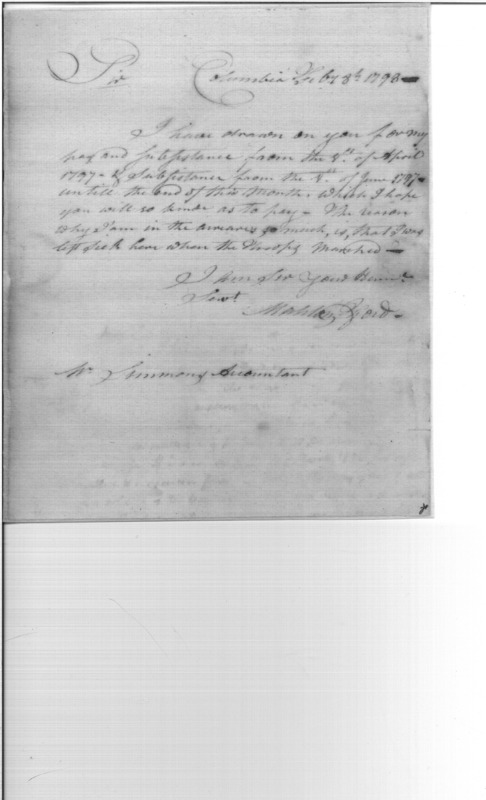 Sir Columbia Feby 8th 1798
I have drawn on you for my
pay and Subsistance from the 8th of April
1797 - & Subsistance from the 8th of June 1797
untill the end of this Month, which I hope
you will so kinde as to pay - The reason
why I am in the arreares so much, is, that I was
left sick here when the Troops Marched -
I am Sir Your Humbe
Servt
Mahlon Ford -
Mr Simmons Accountant